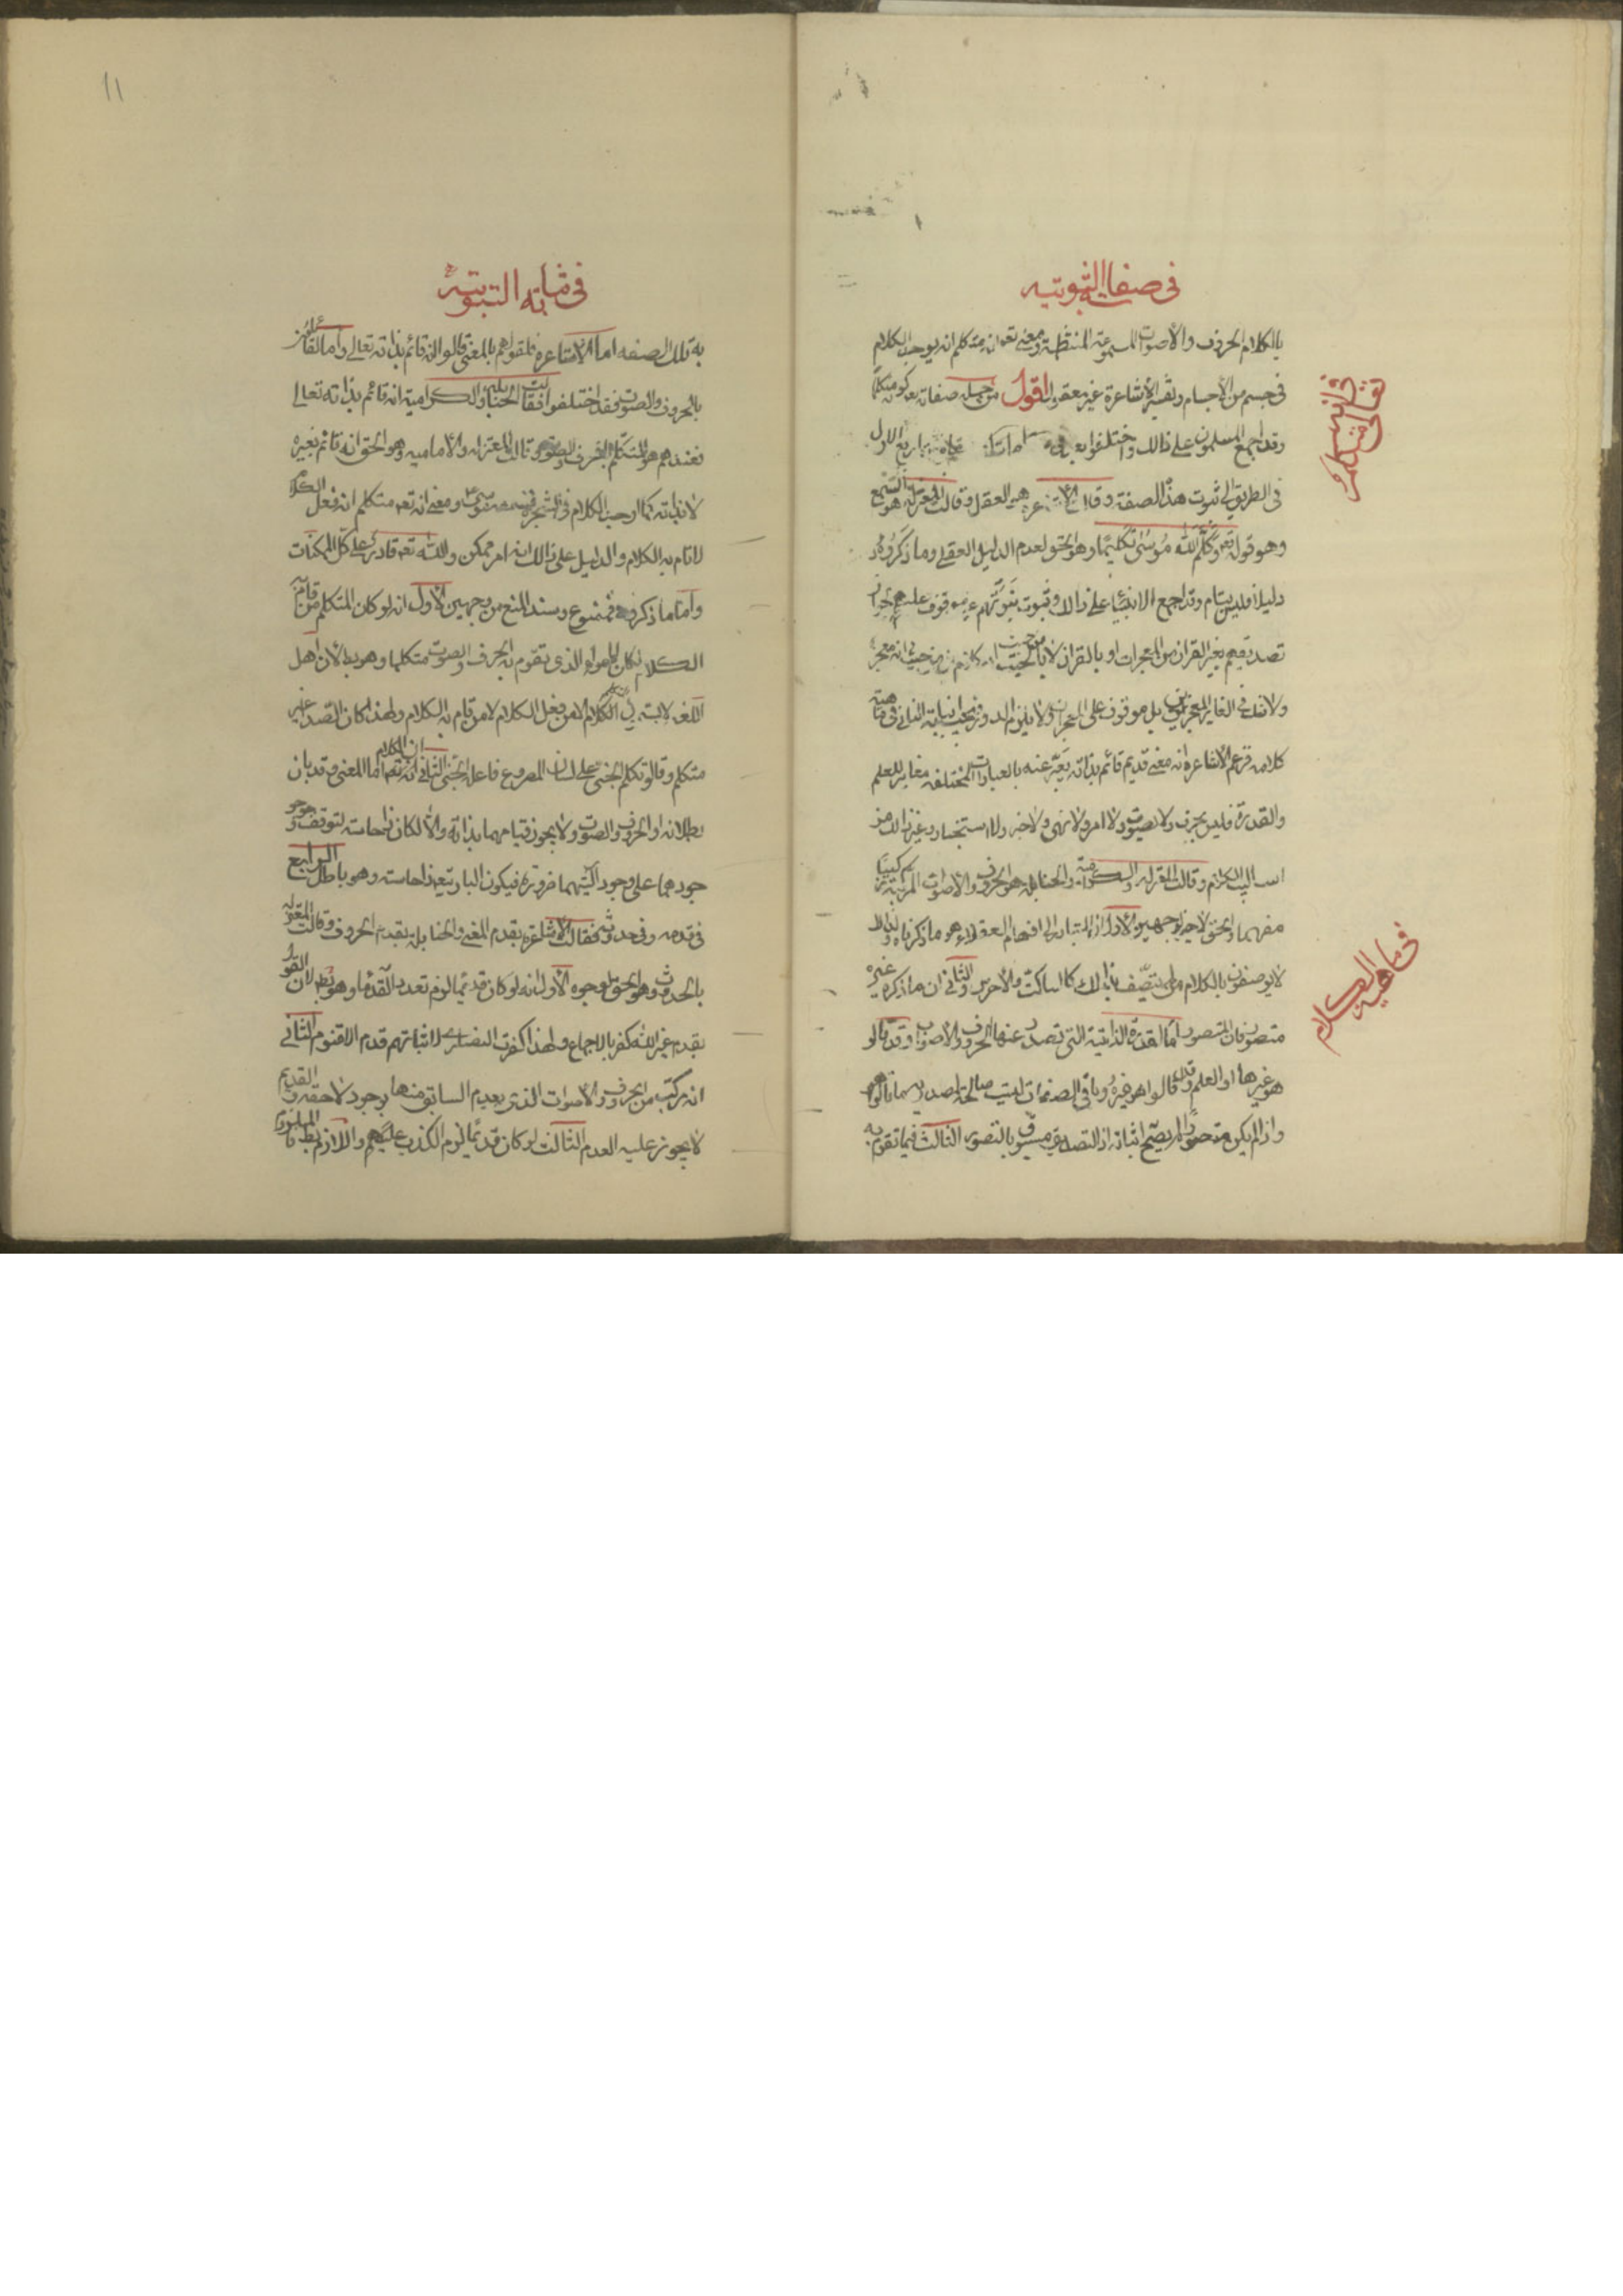 فى صفاته الثبوتيه
بالكلام الحروف والأصوات المسموعة المنتظمة ومعنى تعه انه متكلم انه يوجد الكلام
فى جسم من الأجسام وتفسير الأشاعرة غير معقول اقول من جملة صفاته تعه كونه متكلما
وقد اجمع المسلمون على ذالك واختلفوا بعد فى الاول
فى الطريق الى ثبوت هذا الصفة وقالت الاشاعرة هو العقل وقالت المعتزلة هو السمع
وهو قوله تعه وكلم الله موسى تكليما وهو الحق لعدم الدليل العقلى وما ذكروه
دليلا فليس بتام وقد اجمع الانبياء على ذالك وثبوت نبوتهم غير موقوف عليه لجواز
تصديقهم بغير القران من المعجزات او بالقران لا من حيث انه كلام بل من حيث انه معجز
ولا شك فى تغاير بل موقوف على المعجزات ولا يلزم الدور الثانى فى ماهية
كلامه فزعم الاشاعرة انه معنى قديم قائم بذاته يعبر عنه بالعبارات المختلفه مغاير للعلم
والقدرة فليس بحرف ولا صوت ولا امر ولا نهى ولا خبر ولا استخبار وغير ذالك من
اساليب الكلام وقالت المعتزله والكرامية والحنابله هو الحروف والأصوات المركبة تركيبا
مفهما والحق الاخير لوجهين الأول ان المتبادر الى افهام العقلاء هو ما ذكرناه ولذالك
لا يوصفون بالكلام من لم يتصف بذالك كالساكت والأخرس والثانى ان ما ذكره غيره
متصور فان المتصور اما القدرة الذاتية التى تصدر عنها الحروف والأصوات وقد قالوا
هو غيرها او العلم وقد قالوا هو غيره وباقى الصفات ليست صالحة لمصدرية ما قالوه
واذا لم يكن متصورا لم يصح اثباته اذ التصديق مسبوق بالتصور الثالث فيما تقوم به
شانه
تعالى متكلم
فى ماهية الكلام
۱۱
فى صفاته الثبوتية
به تلك الصفه اما الأشاعرة فلقولهم بالمعنى قالوا انه قائم بذاته تعالى واما القائلون
بالحروف والصوت فقد اختلفوا فقالت الحنابلة والكرامية انه قائم بذاته تعالى
فعندهم هو المتكلم بالحرف والصوت وقالت المعتزله والاماميه وهو الحق انه قائم بغيره
لا بذاته كما اوجد الكلام فى الشجرة فسمعه موسى ومعنى انه تعه متكلم انه فعل الكلام
لا قام به الكلام والدليل على ذالك انه امر ممكن والله تعه قادر على كل الممكنات
واما ما ذكروه فممنوع وسند المنع من وجهين الأول انه لو كان المتكلم من قام به
الكلام لكان الهواء الذى تقوم به الحرف والصوت متكلما وهو بط لأن اهل
اللغه لا يسمون المتكلم الا من فعل الكلام لا من قام به الكلام ولهذا كان الصدا غير
متكلم وقالوا تكلم الجنى على لسان المصروع فاعله الجنى الثانى ان الكلام اما المعنى وقد بان
بطلانه او الحروف والصوت ولا يجوز قيامهما بذاته والا لكان ذا حاسته لتوقف
وجودهما على وجود آلتيهما ضرورة فيكون البارى تعه ذا حاسته وهو باطل الرابع
فى قدمه وفى حدوثه فقالت الاشاعرة بقدم المعنى والحنابلة بقدم الحروف وقالت المعتزله
بالحدوث وهو الحق لوجوه الأول انه لو كان قديما لزم تعدد القدماء وهو بط لان القول
بقدم غير الله كفر بالاجماع ولهذا كفرت النصارى لاثباتهم قدم الاقنوم الثانى
انه مركب من الحروف والاصوات الذى يعدم السابق منها بوجود لاحقه والقديم
لا يجوز عليه العدم الثالث لو كان قديما لزم الكذب عليه واللازم بط فالملزوم